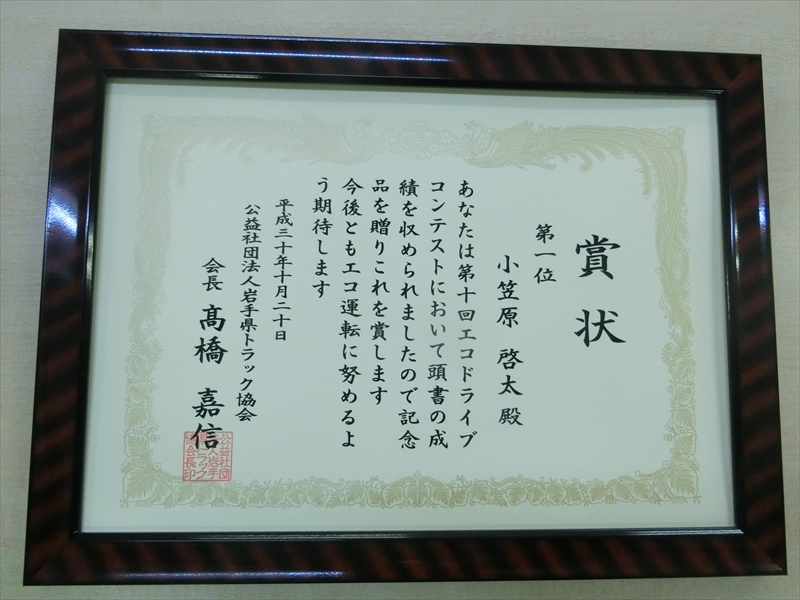 賞状
第一位
小笠原 啓太 殿
あなたは第十回エコドライブ
コンテストにおいて頭書の成
績を収められましたので記念
品を贈りこれを賞します
今後ともエコ運転に努めるよ
う期待します
平成三十年十月二十日
公益社団法人岩手県トラック協会
会長 髙橋 嘉信
公益社団
人岩手
ラック
会長印